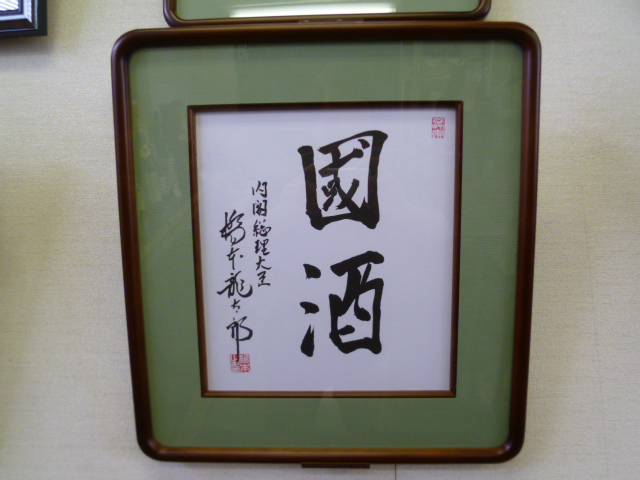 國酒
内閣総理大臣
橋本龍太郎